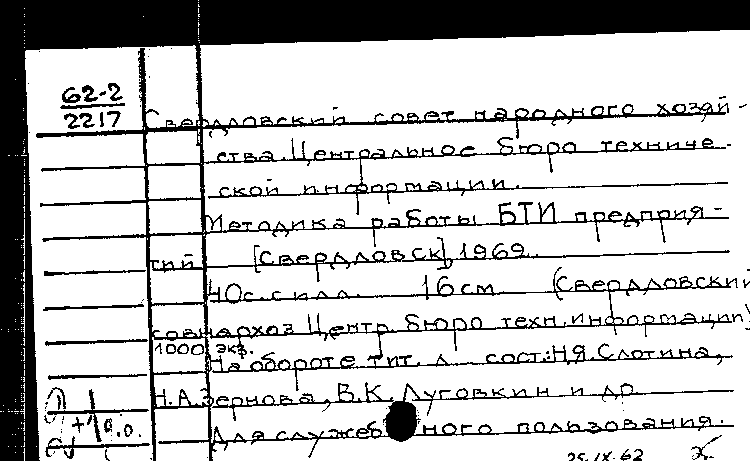 62-2
2217
Свердловский совет народного хозяй-
ства. Центральное бюро техниче-
ской информации.
Методика работы БТИ предприя-
тий [Свердловск], 1969.
40 с. с илл. 16 см (Свердловский
совнархоз Центр. бюро техн. информации)
1000 экз.
На обороте тит. л. сост.: Н.Я. Слотина,
Н.А. Зернова, В.К. Луговкин и др
Для служебного пользования.
25.IX.62